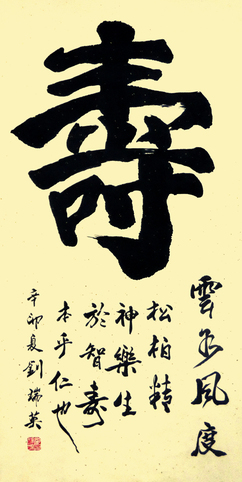 壽
雲水風度
松柏精
神樂生
於智壽
本乎仁也
辛卯夏劉瑞英